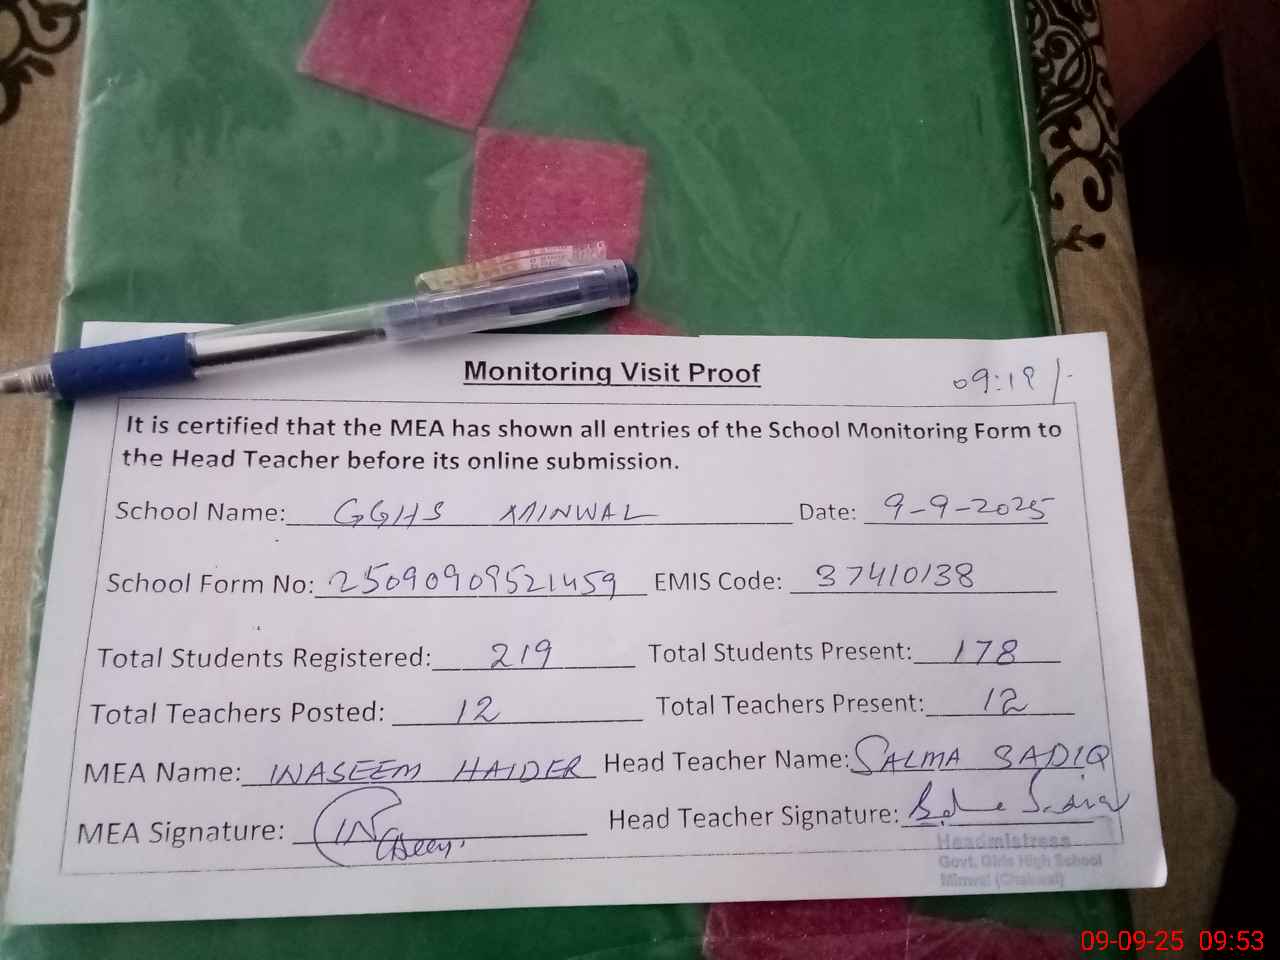 Monitoring Visit Proof
09:19/-
It is certified that the MEA has shown all entries of the School Monitoring Form to
the Head Teacher before its online submission.
School Name: GGHS MINWAL Date: 9-9-2025
School Form No: 25090909521459 EMIS Code: 37410138
Total Students Registered: 219 Total Students Present: 178
Total Teachers Posted: 12 Total Teachers Present: 12
MEA Name: WASEEM HAIDER Head Teacher Name: SALMA SADIQ
MEA Signature: Head Teacher Signature:
Headmistress
Govt. Girls High School
Minwal (Chakwal)
09-09-25 09:53